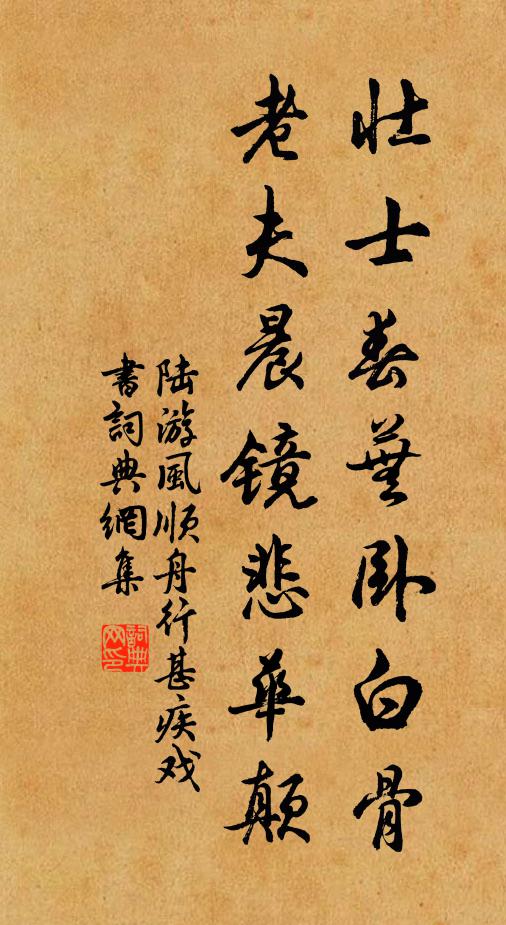 壮士春蕪卧白骨
老夫晨镜悲華顛
陆游風順舟行甚疾戏
書詞典網集
詞典网印